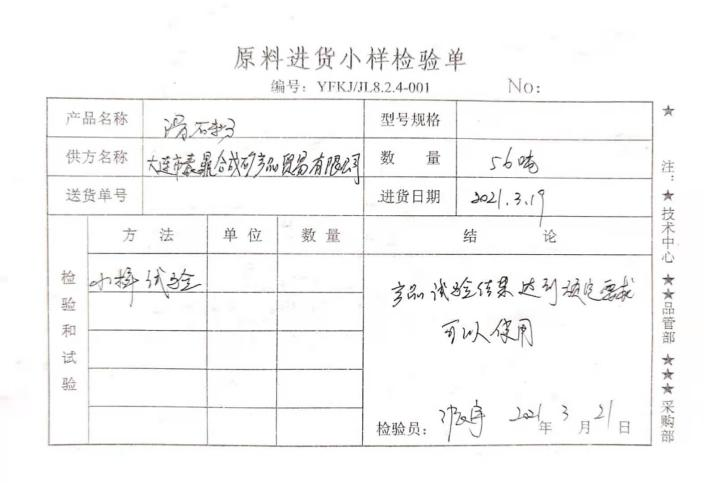 原料进货小样检验单
编号：YFKJ/JL8.2.4-001 No:
产品名称 滑石粉 型号规格
供方名称 大连市鑫鼎合成矿产品贸易有限公司 数 量 56吨
送货单号 进货日期 2021.3.19
方 法 单 位 数 量 结 论
检验和试验
小样试验
产品试验结果达到预定要求
可以使用
检验员： 2021年3月21日
★ 注：★技术中心 ★★品管部 ★★★采购部